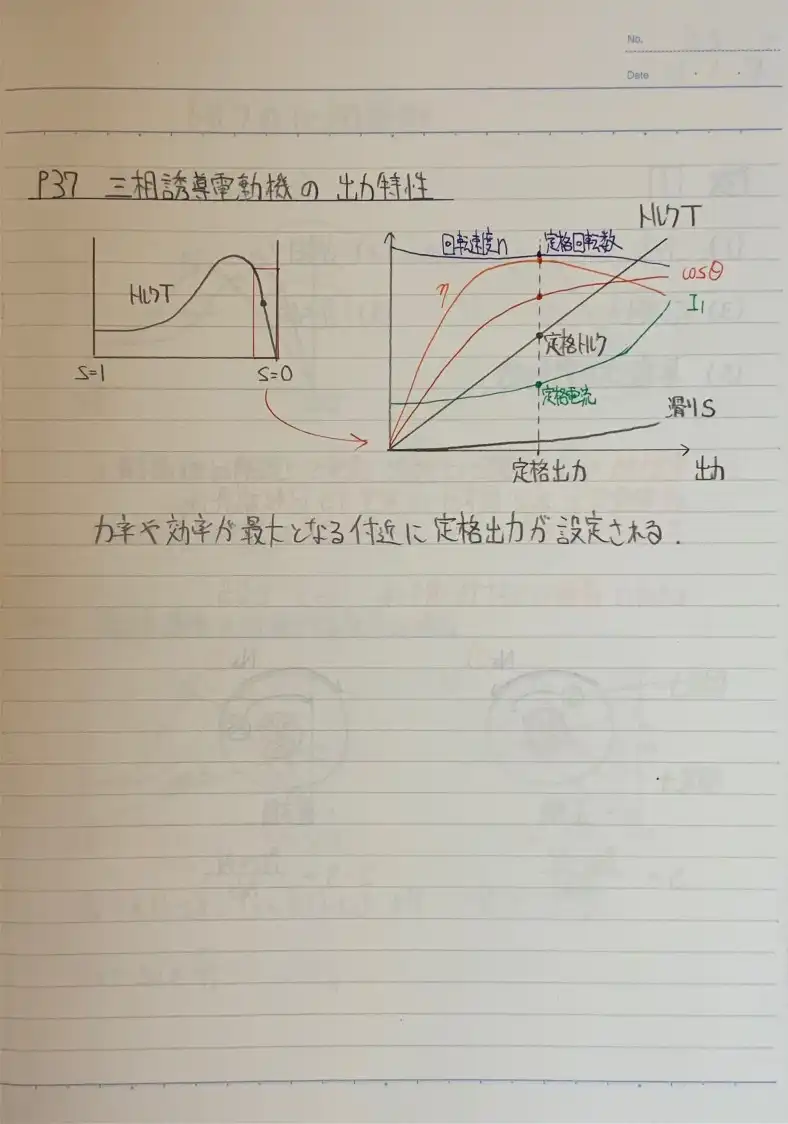 No.
Date
P37 三相誘導電動機の出力特性
トルクT
回転速度n
定格回転数
トルクT
η
cosθ
I₁
定格トルク
定格電流
S=1
S=0
滑りS
定格出力
出力
力率や効率が最大となる付近に定格出力が設定される.